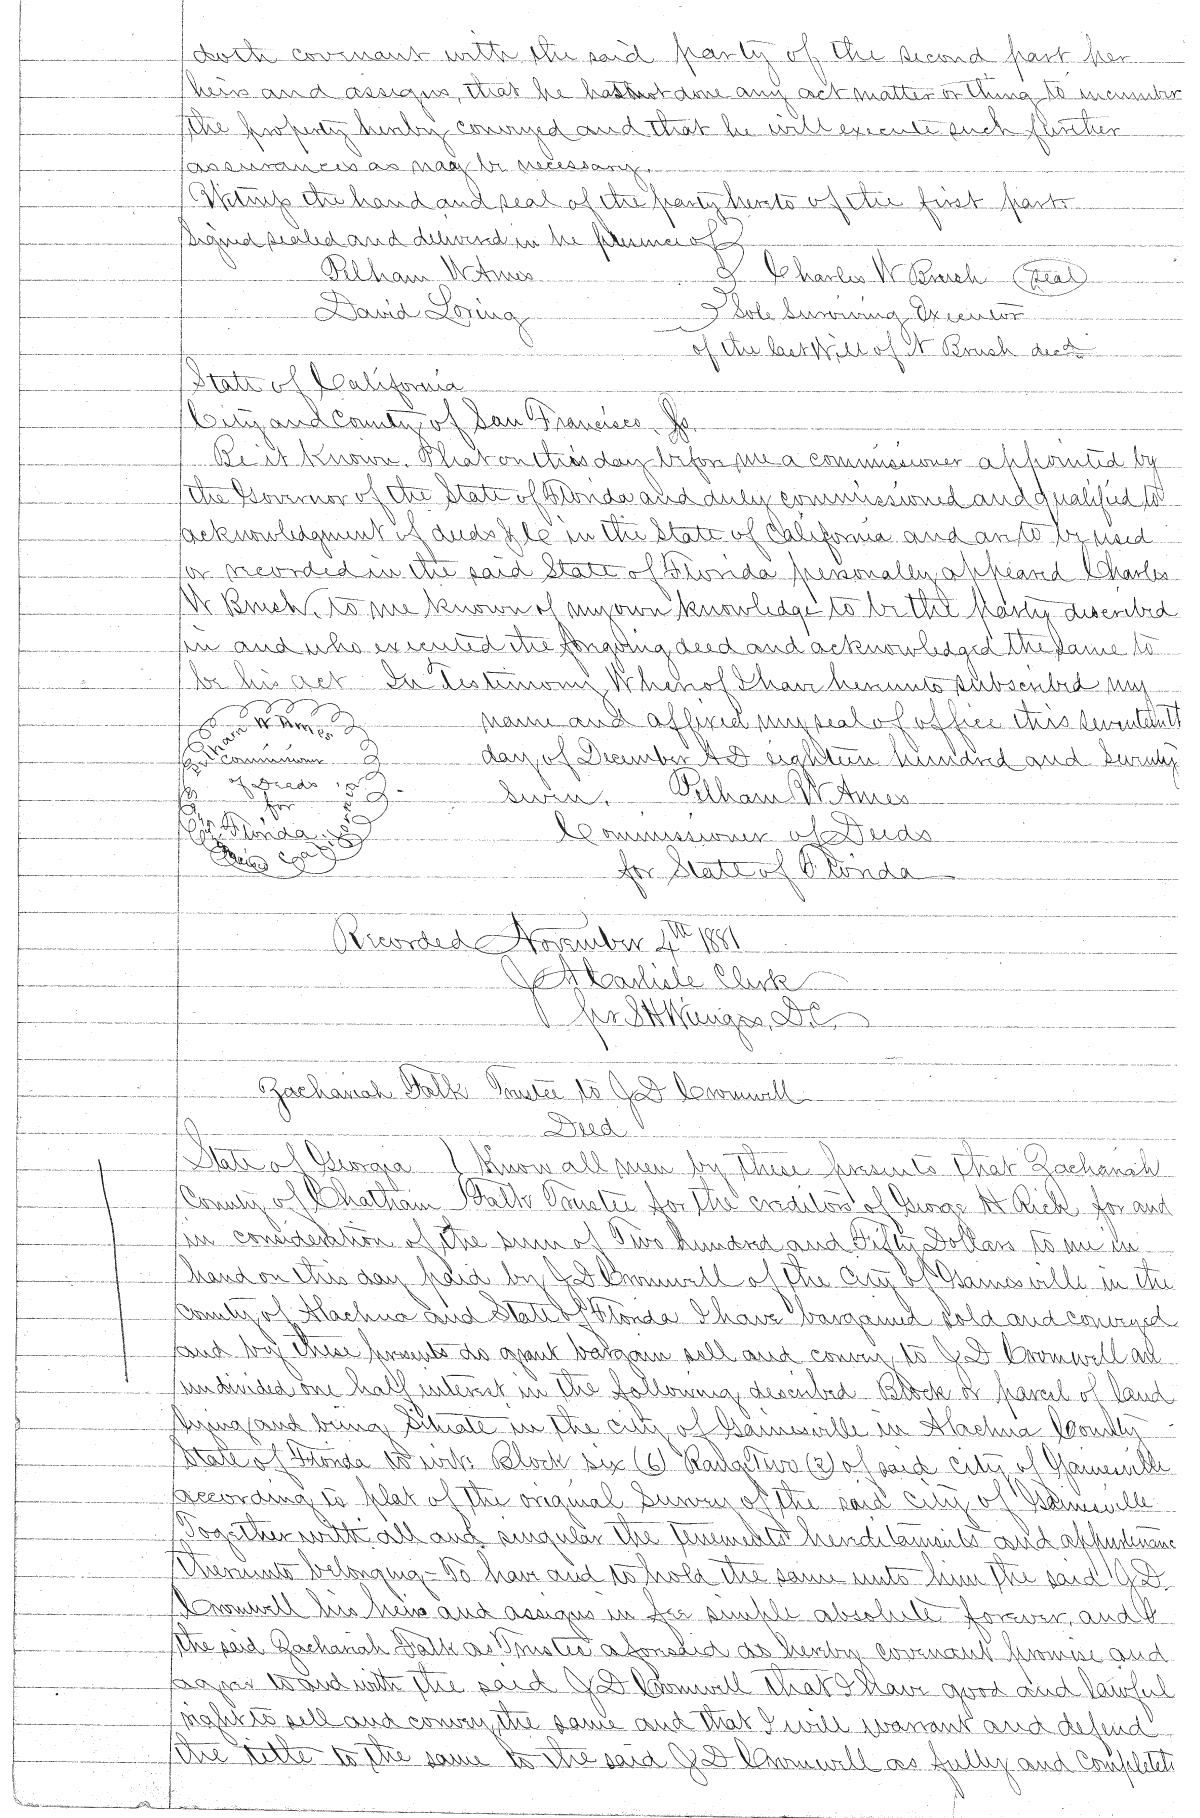 doth covenant with the said party of the second part her
heirs and assigns, that he hath not done any act matter or thing to incumber
the property hereby conveyed and that he will execute such further
assurances as may be necessary.
Witness the hand and seal of the party hereto of the first part
Signed sealed and delivered in he presence of
Pelham W Ames Charles W Brush (seal)
David Loring Sole Surviving Executor
of the last Will of N Brush decd
State of California
City and County of San Francisco Ss.
Be it Known. That on this day before me a commissioner appointed by
the Governor of the State of Florida and duly commissioned and qualified to
acknowledgment of deeds &c in the State of California and are to be used
or recorded in the said State of Florida personally appeared Charles
W Brush, to me known of my own knowledge to be the party described
in and who executed the forgoing deed and acknowledged the same to
be his act In Testimony Whereof I have hereunto subscribed my
name and affixed my seal of office this seventeenth
day of December A D eighteen hundred and seventy
seven. Pelham W Ames
Commissioner of Deeds
for State of Florida
Pelham W Ames
Commissioner
of Deeds
for
Florida
California
Recorded November 4th 1881
J A Carlisle Clerk
per S H Wienges, D.C.
Zachariah Falk Trustee to J D Cromwell
Deed
State of Georgia } Know all men by these presents that Zachariah
County of Chatham Falk Trustee for the creditors of George H Rich for and
in consideration of the sum of Two hundred and Fifty Dollars to me in
hand on this day paid by J D Cromwell of the City of Gainesville in the
County of Alachua and State of Florida I have bargained sold and conveyed
and by these presents do grant bargain sell and convey to J D Cromwell an
undivided one half interest in the following described Block or parcel of land
lying and being Situate in the city of Gainesville in Alachua County
State of Florida to wit: Block six (6) Range Two (2) of said city of Gainesville
according to plat of the original Survey of the said city of Gainesville
Together with all and singular the tenements hereditaments and appurtenance
thereunto belonging - To have and to hold the same unto him the said J D
Cromwell his heirs and assigns in fee simple absolute forever, and I
the said Zachariah Falk as Trustee aforesaid do hereby covenant promise and
agree to and with the said J D Cromwell that I have good and lawful
right to sell and convey the same and that I will warrant and defend
the title to the same to the said J D Cromwell as fully and completely